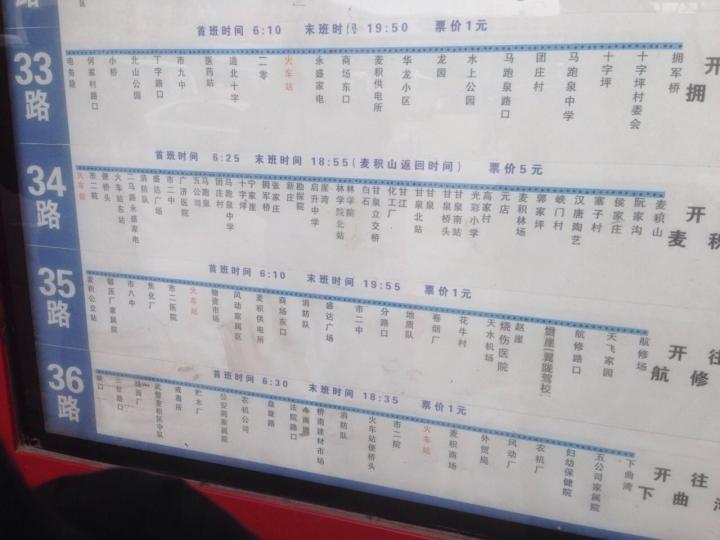 区
首班时间 6:10 末班时间 19:50 票价1元
33路
电务段 何家村路口 小桥 北山公园 丁字路口 市九中 医药站 道北十字 二零 火车站 永盛家电 商场东口 麦积供电所 华龙小区 龙园 水上公园 马跑泉路口 团庄村 马跑泉中学 十字坪 十字坪村委会 拥军桥
开
拥
首班时间 6:25 末班时间 18:55(麦积山返回时间) 票价5元
34路
火车站 市二院 便桥头 火车站东站 二马路永盛家电 消防队 盛达广场 市二中 广济医院 五公司 马跑泉 团庄村 马跑泉中学 十字坪 宁家崖 拥军桥 张家庄 新庄 勘探院 启升中学 崖湾 林学院 林学院北站 白石 甘泉立交桥 化工厂 甘江 甘泉北站 甘泉 甘泉桥头 甘泉南站 光彩小学 高家村 元店 麦积林场 郭家坪 峡门村 汉唐陶艺 塞子村 侯家庄 阮家沟 麦积山
开
麦积
首班时间 6:10 末班时间 19:55 票价1元
35路
麦积公交站 锻压厂家属院 市八中 焦化厂 市二医院 火车站 物资市场 风动家属区 麦积供电所 商场东口 消防队 盛达广场 市二中 分路口 地质队 卷烟厂 花牛村 天水机场 烧伤医院 赵崖 航修路口 天飞家园 航修场
开往
航修
首班时间 6:30 末班时间 18:35 票价1元
36路
武警麦积区中队 戒毒所 贮木厂 公安局家属院 农机公司 盘旋路 法院路口 桥南建材市场 消防队 火车站便桥头 市二院 火车站 麦积商场 外贸局 风动厂 农机厂 妇幼保健院 五公司家属院 下曲湾
开往
下曲湾